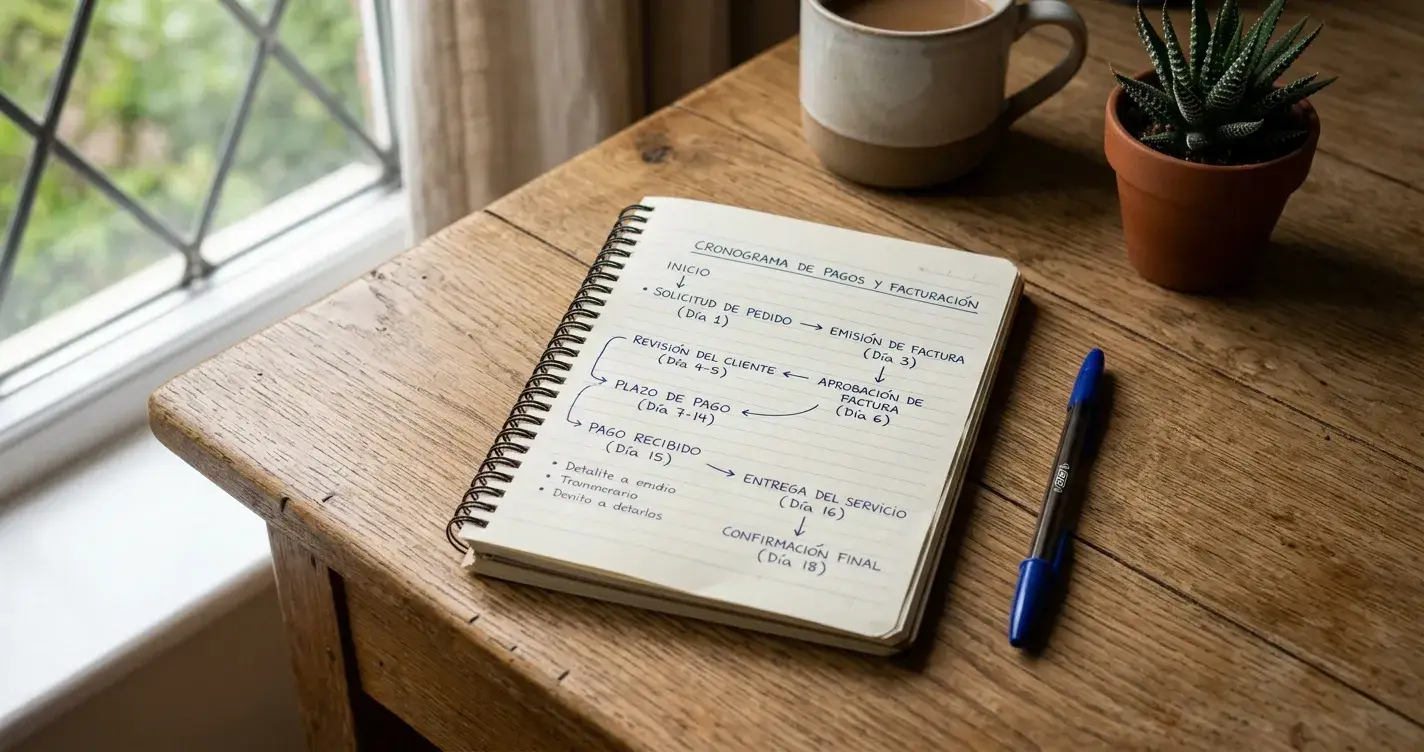 CRONOGRAMA DE PAGOS Y FACTURACIÓN
INICIO
• SOLICITUD DE PEDIDO
(Día 1)
EMISIÓN DE FACTURA
(Día 3)
REVISIÓN DEL CLIENTE
(Día 4-5)
APROBACIÓN DE
FACTURA
(Día 6)
PLAZO DE PAGO
(Día 7-14)
PAGO RECIBIDO
(Día 15)
• Detalite a
• 
• a detarlos
ENTREGA DEL SERVICIO
(Día 16)
CONFIRMACIÓN FINAL
(Día 18)